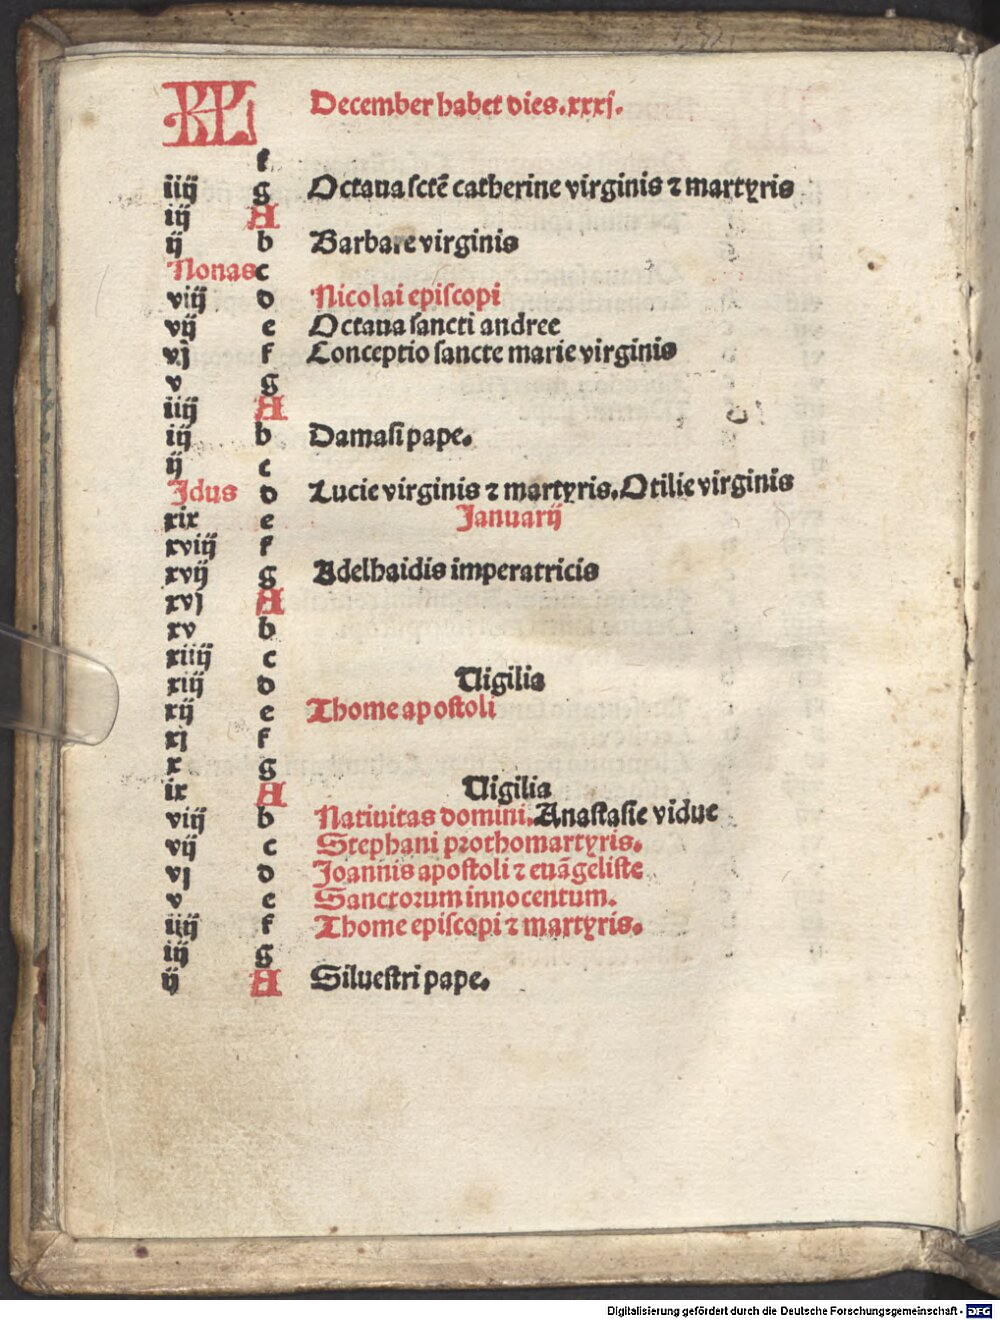 KL December habet dies.xxxj.
f
iiij g Octaua sctē catherine virginis ⁊ martyris
iij A
ij b Barbare virginis
Nonas c
viij d Nicolai episcopi
vij e Octaua sancti andree
vj f Conceptio sancte marie virginis
v g
iiij A
iij b Damasi pape.
ij c
Idus d Lucie virginis ⁊ martyris. Otilie virginis
xix e Januarij
xviij f
xvij g Adelhaidis imperatricis
xvj A
xv b
xiiij c
xiij d Uigilia
xij e Thome apostoli
xj f
x g
ix A Uigilia
viij b Natiuitas domini. Anastasie vidue
vij c Stephani prothomartyris.
vj d Joannis apostoli ⁊ euāgeliste
v e Sanctorum innocentum.
iiij f Thome episcopi ⁊ martyris.
iij g
ij A Siluestri pape.
Digitalisierung gefördert durch die Deutsche Forschungsgemeinschaft - DFG